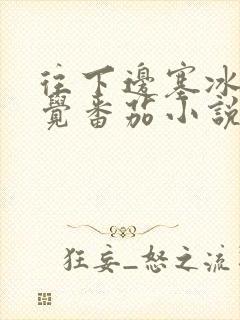 往下邊塞冰
覺番茄小說
狂妄_怒之流